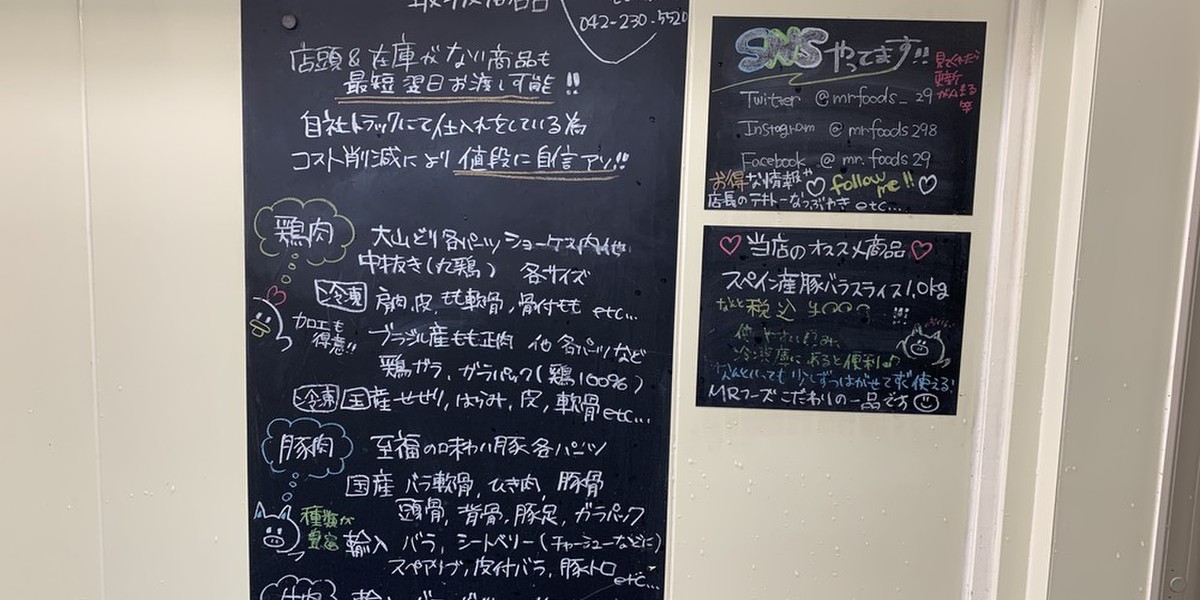 取扱商品
042-230-5520
店頭&在庫がない商品も
最短翌日お渡し可能!!
自社トラックにて仕入れをしている為
コスト削減により値段に自信アリ!!
鶏肉
大山どり各パーツ ショーケス内他
中抜き(丸鶏) 各サイズ
冷凍 肩肉,皮,もも軟骨,骨付もも etc...
加工も
得意!!
ブラジル産もも正肉 他各パーツなど
鶏ガラ,ガラパック(鶏100%)
冷凍 国産せせり,はらみ,皮,軟骨etc...
豚肉
至福の味わい豚各パーツ
国産 バラ軟骨,ひき肉,豚骨
頭骨,背骨,豚足,ガラパック
種類が
豊富
輸入 バラ,シートベリー(チャーシューなどに)
スペアリブ,皮付バラ,豚トロ
etc...
SNSやってます!!
見てくれたら
更新
がんばる
Twitter @mrfoods_29
Instagram @mrfoods298
Facebook @mr.foods29
お得な情報や
follow me!!
店長のテキトーなつぶやき etc...
♡当店のオススメ商品♡
スペイン産豚バラスライス1.0kg
なんと税込
冷凍庫にあると便利♪
なんといっても少しずつはがせてすぐ使える
MRフーズこだわりの一品です